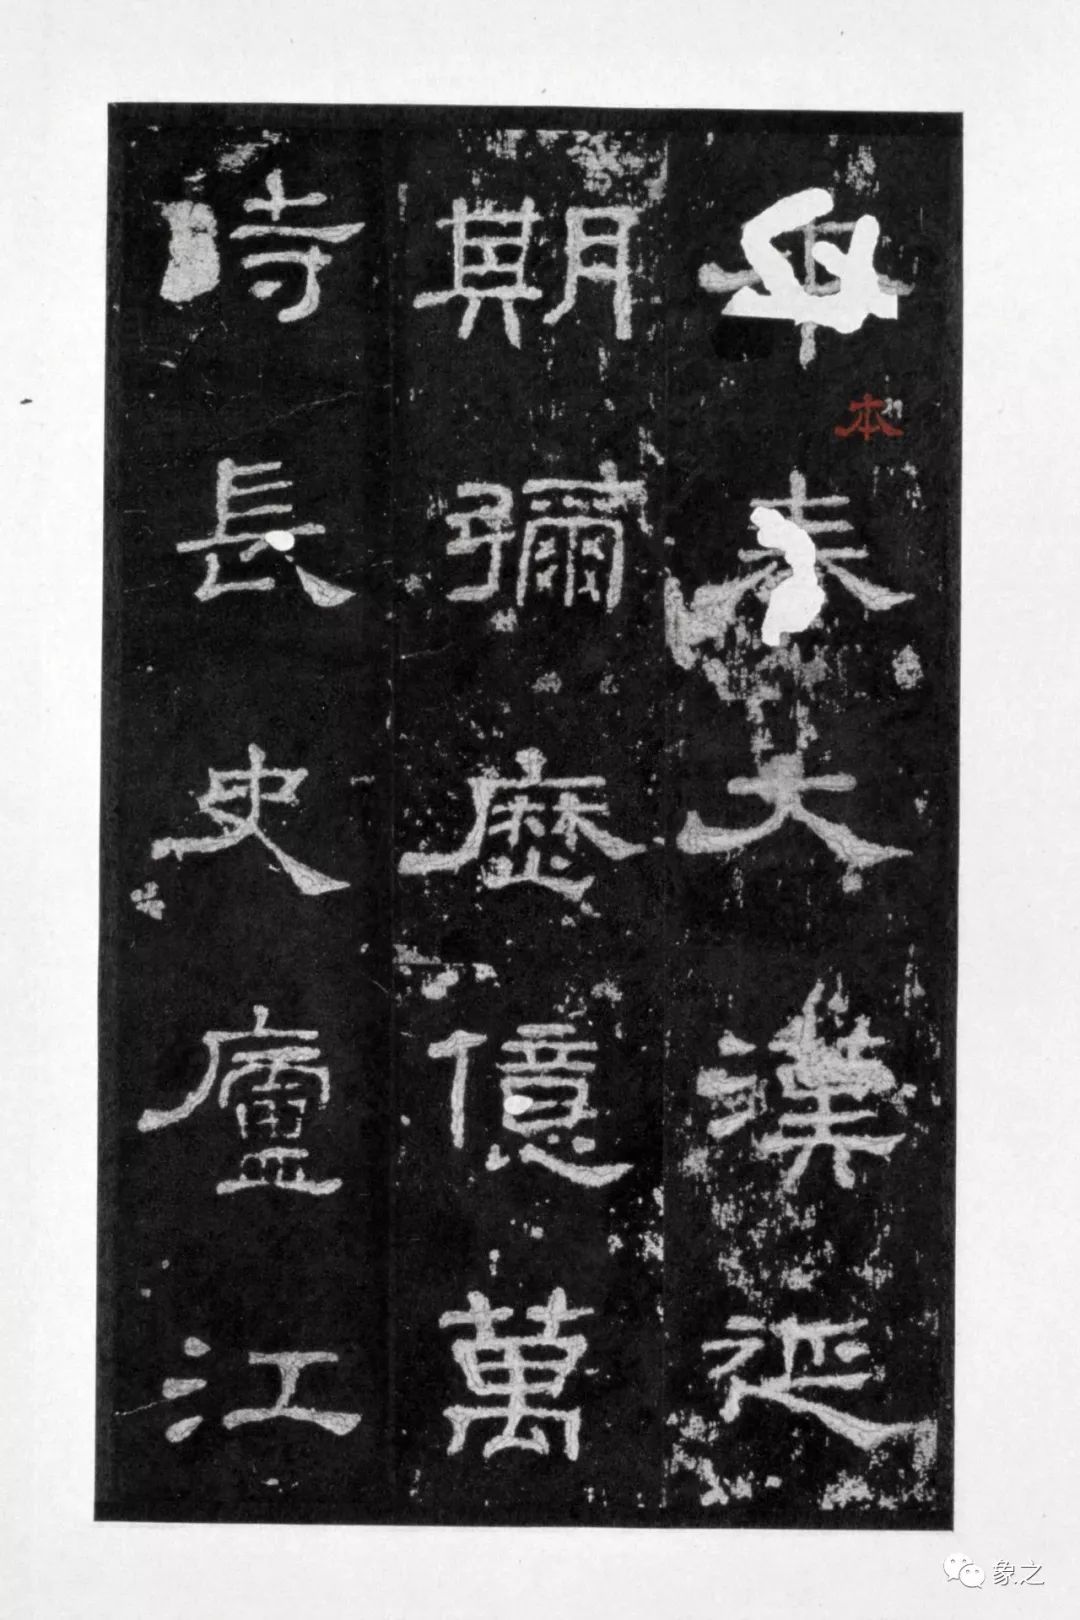 本奏大漢延
期彌歷億萬
時長史廬江
本
象之